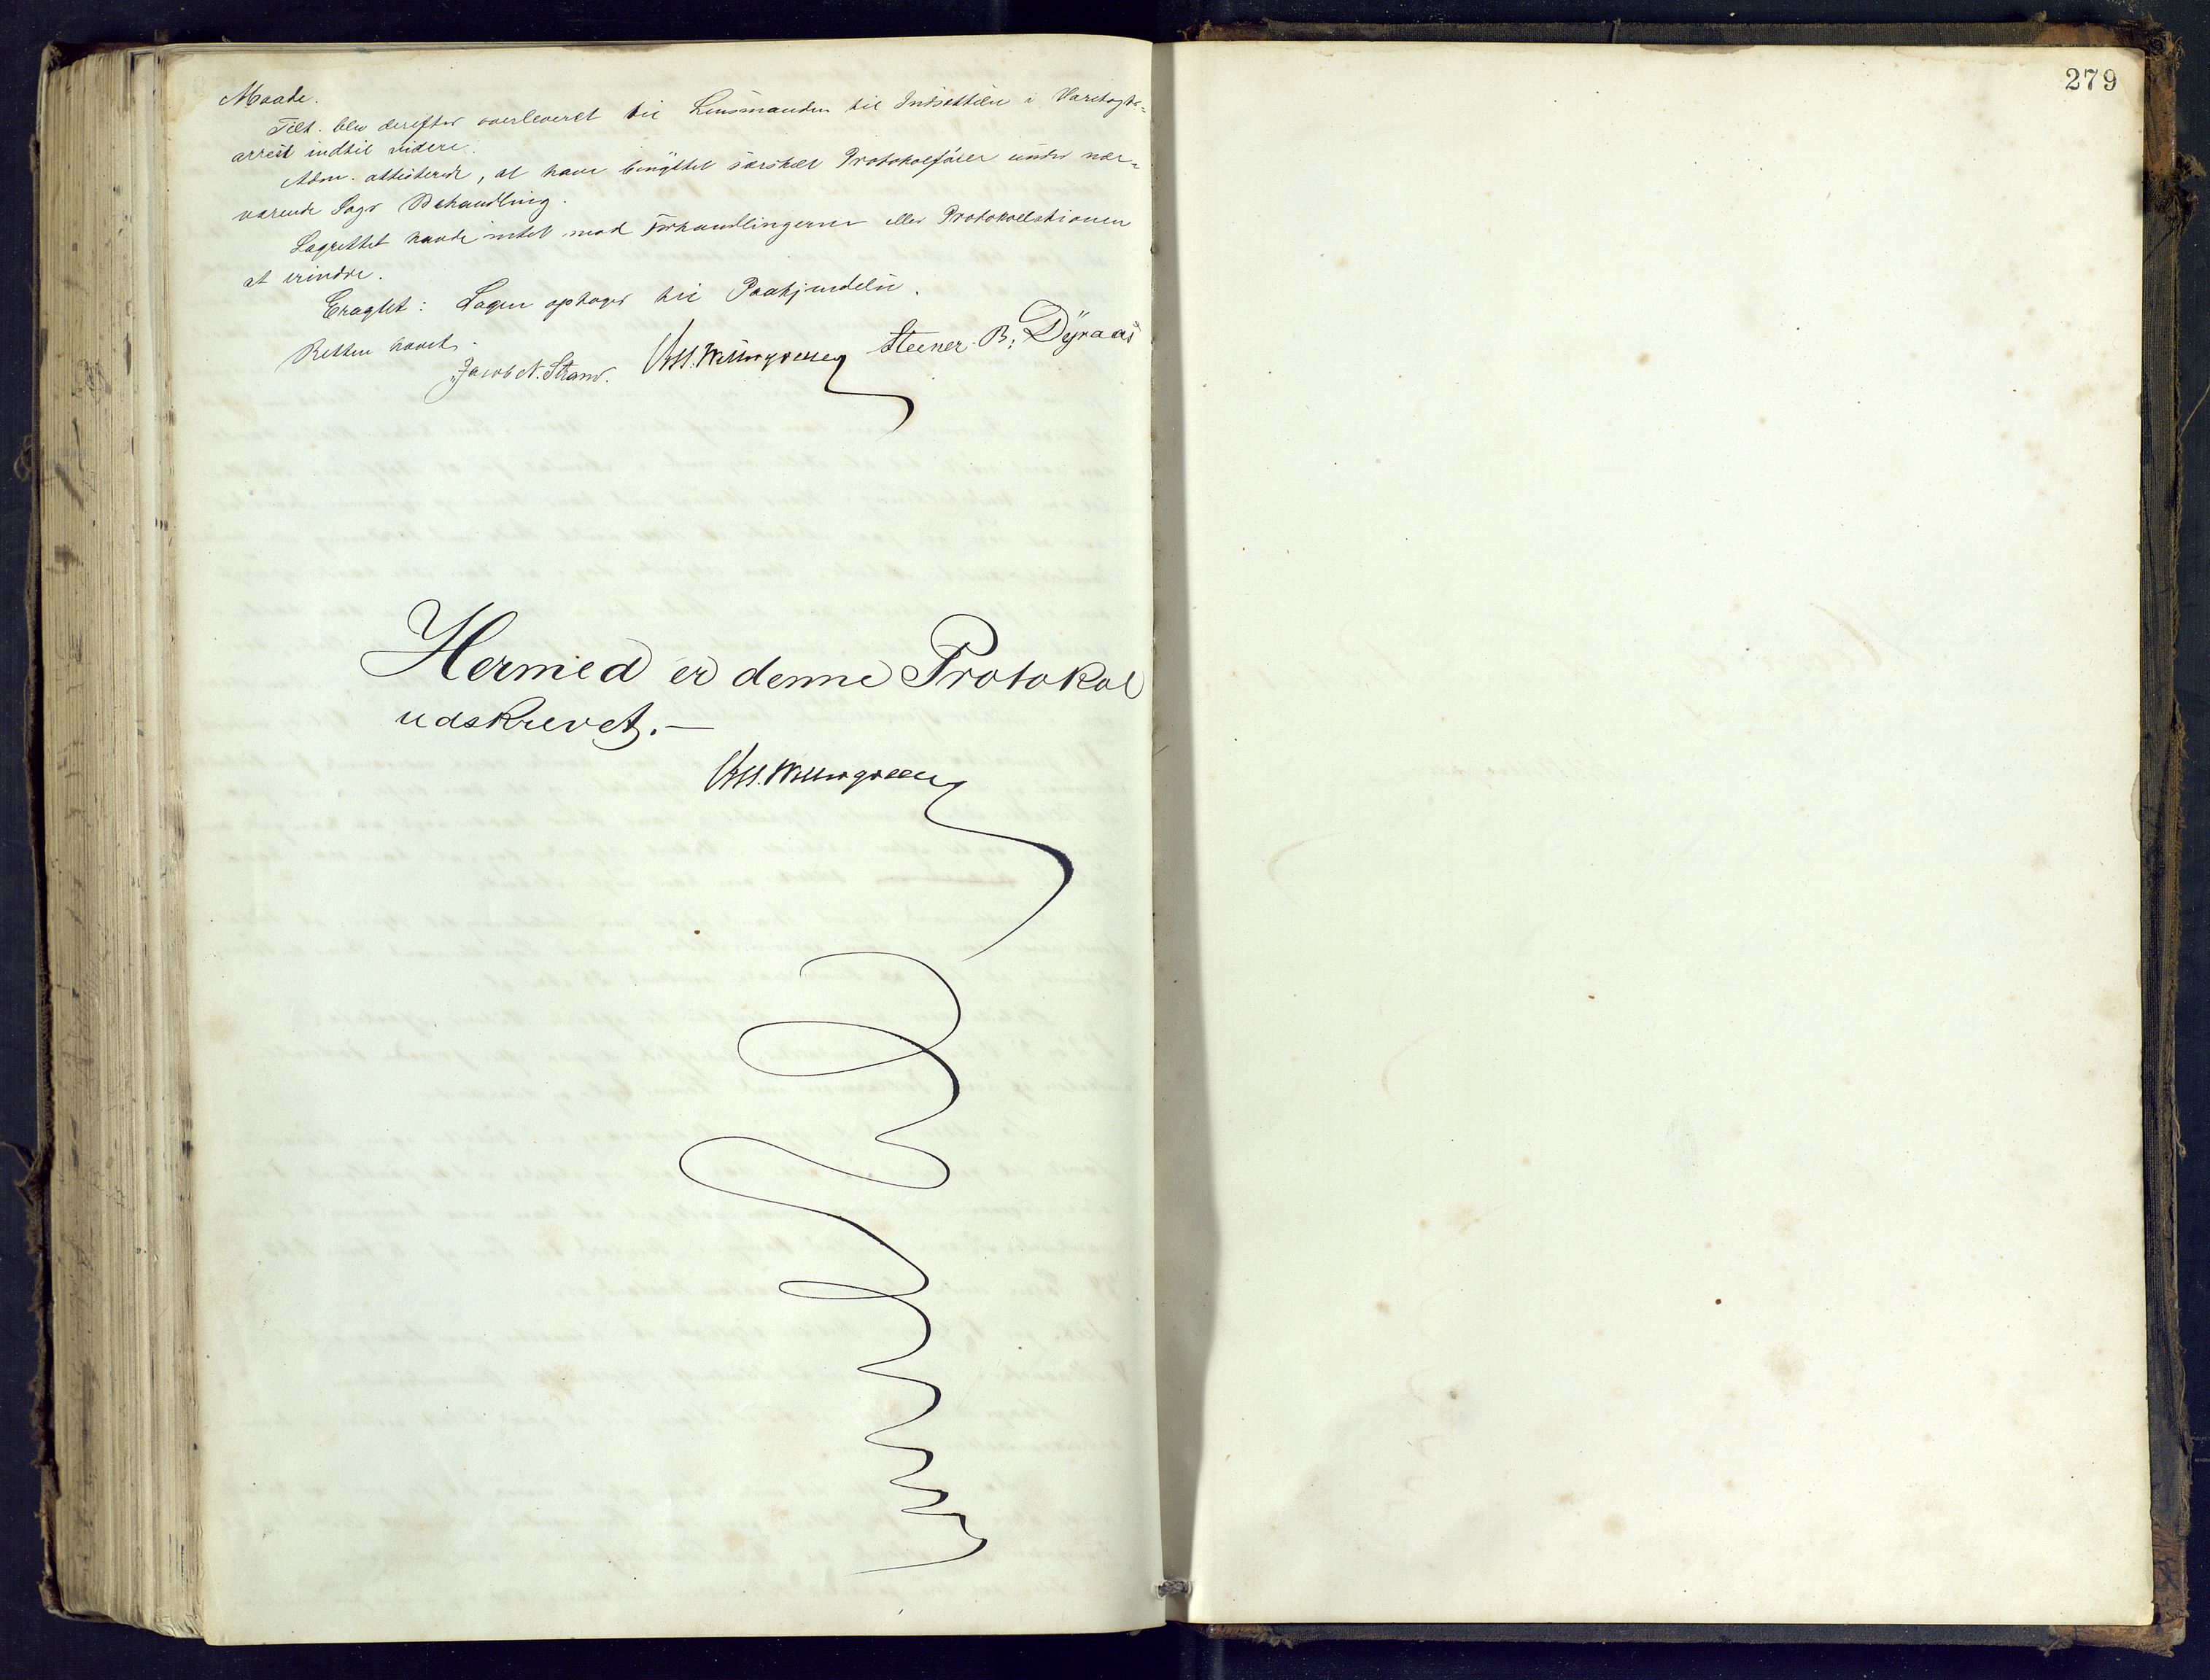 279
Maade.
Tilt. blev derefter overleveret til Lensmanden til Indsættelse i Varetægts-
arrest indtil videre.
Adm. attesterede, at have benyttet særskilt Protokolfører under nær-
værende Sags Behandling.
Lagrettet havde intet mod Forhandlingerne eller Protokollationen
at erindre.
Eragtet: Sagen optages til Paakjendelse.
Retten hævet.
Jacob N. Strand. Steener. B. Dÿraas
Hermed er denne Protokol
udskrevet. —